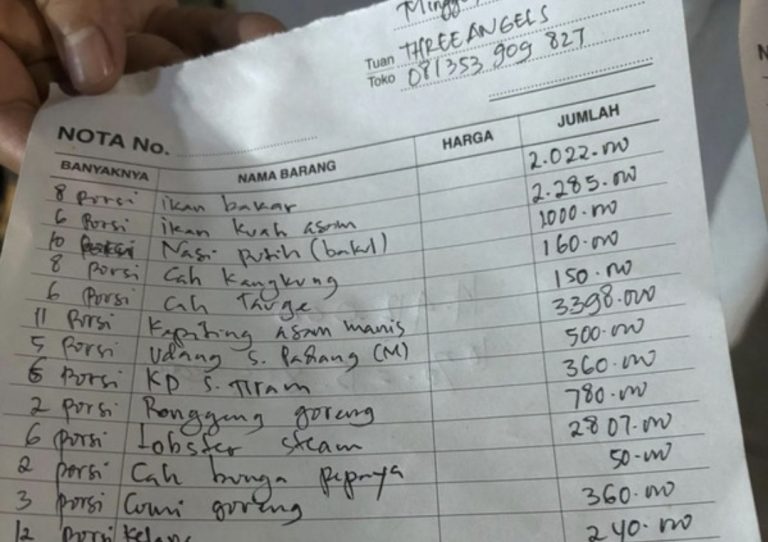 Tuan THREE ANGELS
Toko 081353 909 827
NOTA No.
BANYAKNYA NAMA BARANG HARGA JUMLAH
8 Porsi ikan bakar 2.022.000
6 Porsi ikan kuah asam 2.285.000
10 Nasi putih (bakul) 1000.000
8 Porsi Cah Kangkung 160.000
6 Porsi Cah Tauge 150.000
11 Porsi Kepiting asam manis 3398.000
5 Porsi Udang S. Padang (M) 500.000
6 Porsi KP S. Tiram 360.000
2 Porsi Ronggeng goreng 780.000
6 Porsi Lobster steam 2807.000
2 Porsi Cah bunga pepaya 50.000
3 Porsi Cumi goreng 360.000
12 Porsi Kelapa 240.000